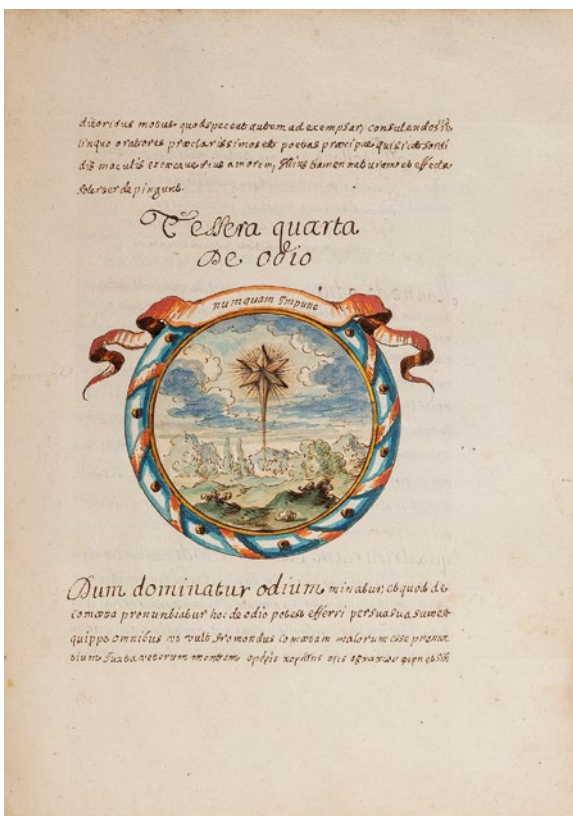 ditoribus motus quod spectat autem ad exemplar, consulendos re
linquo oratores præclarissimos et poetas præcipue qui sicut sordi
dis maculis excæcaverius amorem, illius tamen naturam et effecta
solerter depingunt.
Tessera quarta
De odio
numquam Impune
Dum dominatur odium minatur, et quod de
Comæta pronuntiatur hoc de odio potest efferri persuasua sum est
quippe omnibus ut vult fromondus Comætam malorum esse prænun
tium Juxta veterum mentem